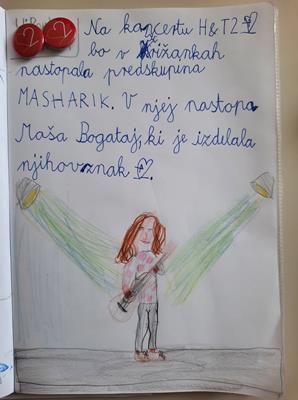 Na koncertu H&TZ
bo v Križankah
nastopala predskupina
MASHARIK. V njej nastopa
Maša Bogataj, ki je izdelala
njihov znak